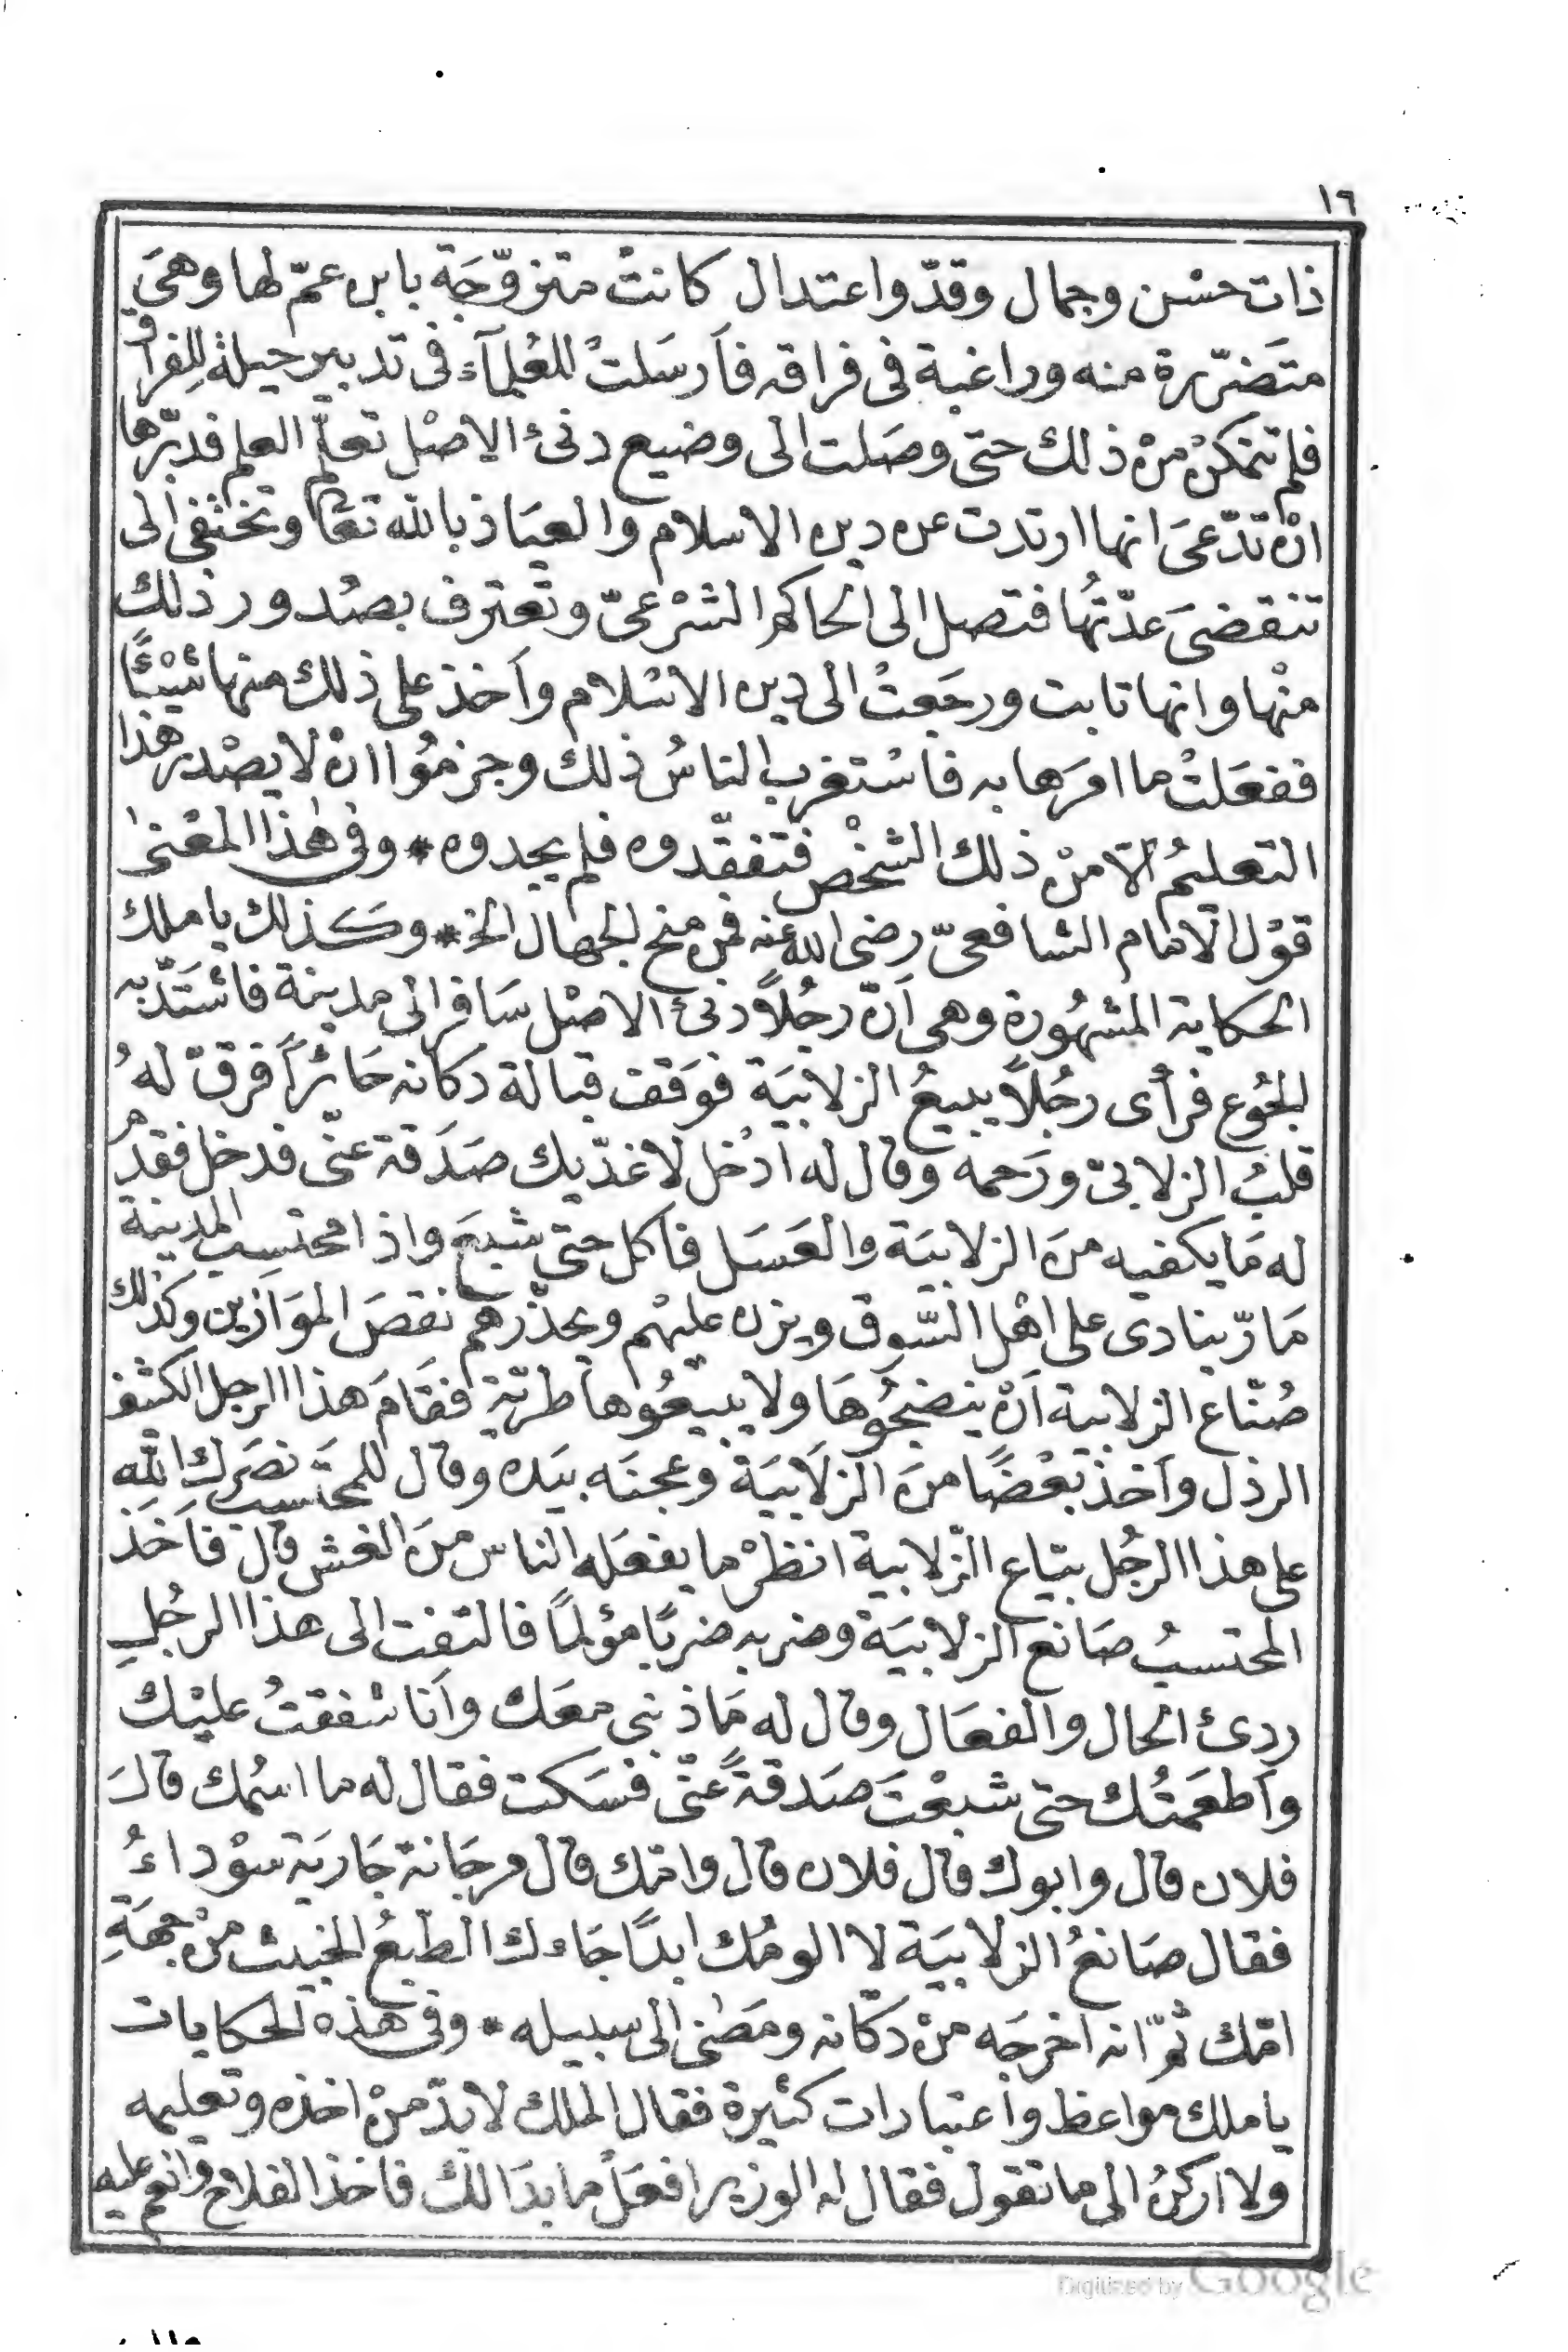 ١٦
ذات حسْن وجمال وقدّ واعتدال كانتْ متزوّجَة بابن عمّ لها وهىَ
متَضرّرة منه وراغبة فى فراقه فاَرسَلتْ للعُلمآء فى تدبير حيلة لِلفراق
فلم تتمكنْ منْ ذلك حتى وصَلت الى وضيع دنئ الاصْل تعلّم العلم فدبّرها
انْ تدّعىَ انها ارتدت عن دين الاسلام والعيَاذ بالله تعا وتختفى الى
تنقضىَ عدّتهُا فتصل الى الحاكم الشرْعىّ وتعترف بصُدور ذلك
منْها وانها تابت ورجَعتْ الى دين الاسْلام واَخذ على ذلك منها شيْئًا
ففعَلتْ ما امرَها به فاسْتغرب الناسُ ذلك وجزمُوا انْ لا يصْدر هذا
التعليمُ الّا منْ ذلك الشخْص فتفقّدوه فلم يجدوه * وفى هٰذا المعْنىٰ
قوْل الامام الشافعىّ رضى الله عنه فمن منح الجهال الخ * وكَذلك يا ملك
الحكاية المشهُورة وهى اَنّ رجُلاً دنئ الاصْل سَافر الى مدينة فاشتَدّ به
الجُوع فرأى رجُلاً يبيعُ الزلابيَة فوَقف قبالة دكانه حَائرًا فرقّ لهُ
قلبُ الزلابىّ ورَحمه وقال له ادْخل لاغدّيك صَدَقة عنّى فدخل فقدّم
له مَا يكفيه منَ الزلابيَة والعَسَل فاكل حتى شبعَ واذا محتسِب المدينة
مَارّ ينادى على اهْل السّوق ويزن عليهْم ويحذّرهم نقصَ الموَازين وكذلك
صُنّاع الزلابية اَنْ ينضجُوهَا ولا يبيعُوها طريّة فقَامَ هذا الرجل الكثف
الرذل واَخذ بعْضًا منَ الزلَابيَة وعجنَه بيَده وقال للمحتَسب نصَرك الله
على هذا الرجُل بيّاع الزّلابية انظرْ ما يفعَله الناس منَ الغش قال فاَخَذ
المحتسبُ صَانع الزلابيَة وضربه ضربًا مؤلمًا فالتفت الى هذا الرجُلِ
ردئ الحال والفعَال وقال له مَا ذنبى معَك واَنا شفقتُ عليْك
واَطعَمتُك حتى شبعْتَ صَدقةً عنّى فسَكت فقال له ما اسْمك قالَ
فلان قال وابوك قال فلان قال وامّك قال مرجَانة جَاريَة سوْداءُ
فقال صَانعُ الزلابيَة لا الومُك ابدًا جَاءك الطّبعُ الخبيث منْ جهَةِ
امّك ثمّ انه اخرجَه منْ دكّانه ومَضى الى سبيله * وفى هذه الحكايات
يا ملك مواعظ واعتبارات كثيرة فقال الملك لا بدّ منْ اخذه وتعليمه
ولا اركنُ الى ما تقول فقال له الوزير افعَلْ ما بدَا لكَ فاخذ الفلاح وانعم عليه
Digitized by Google